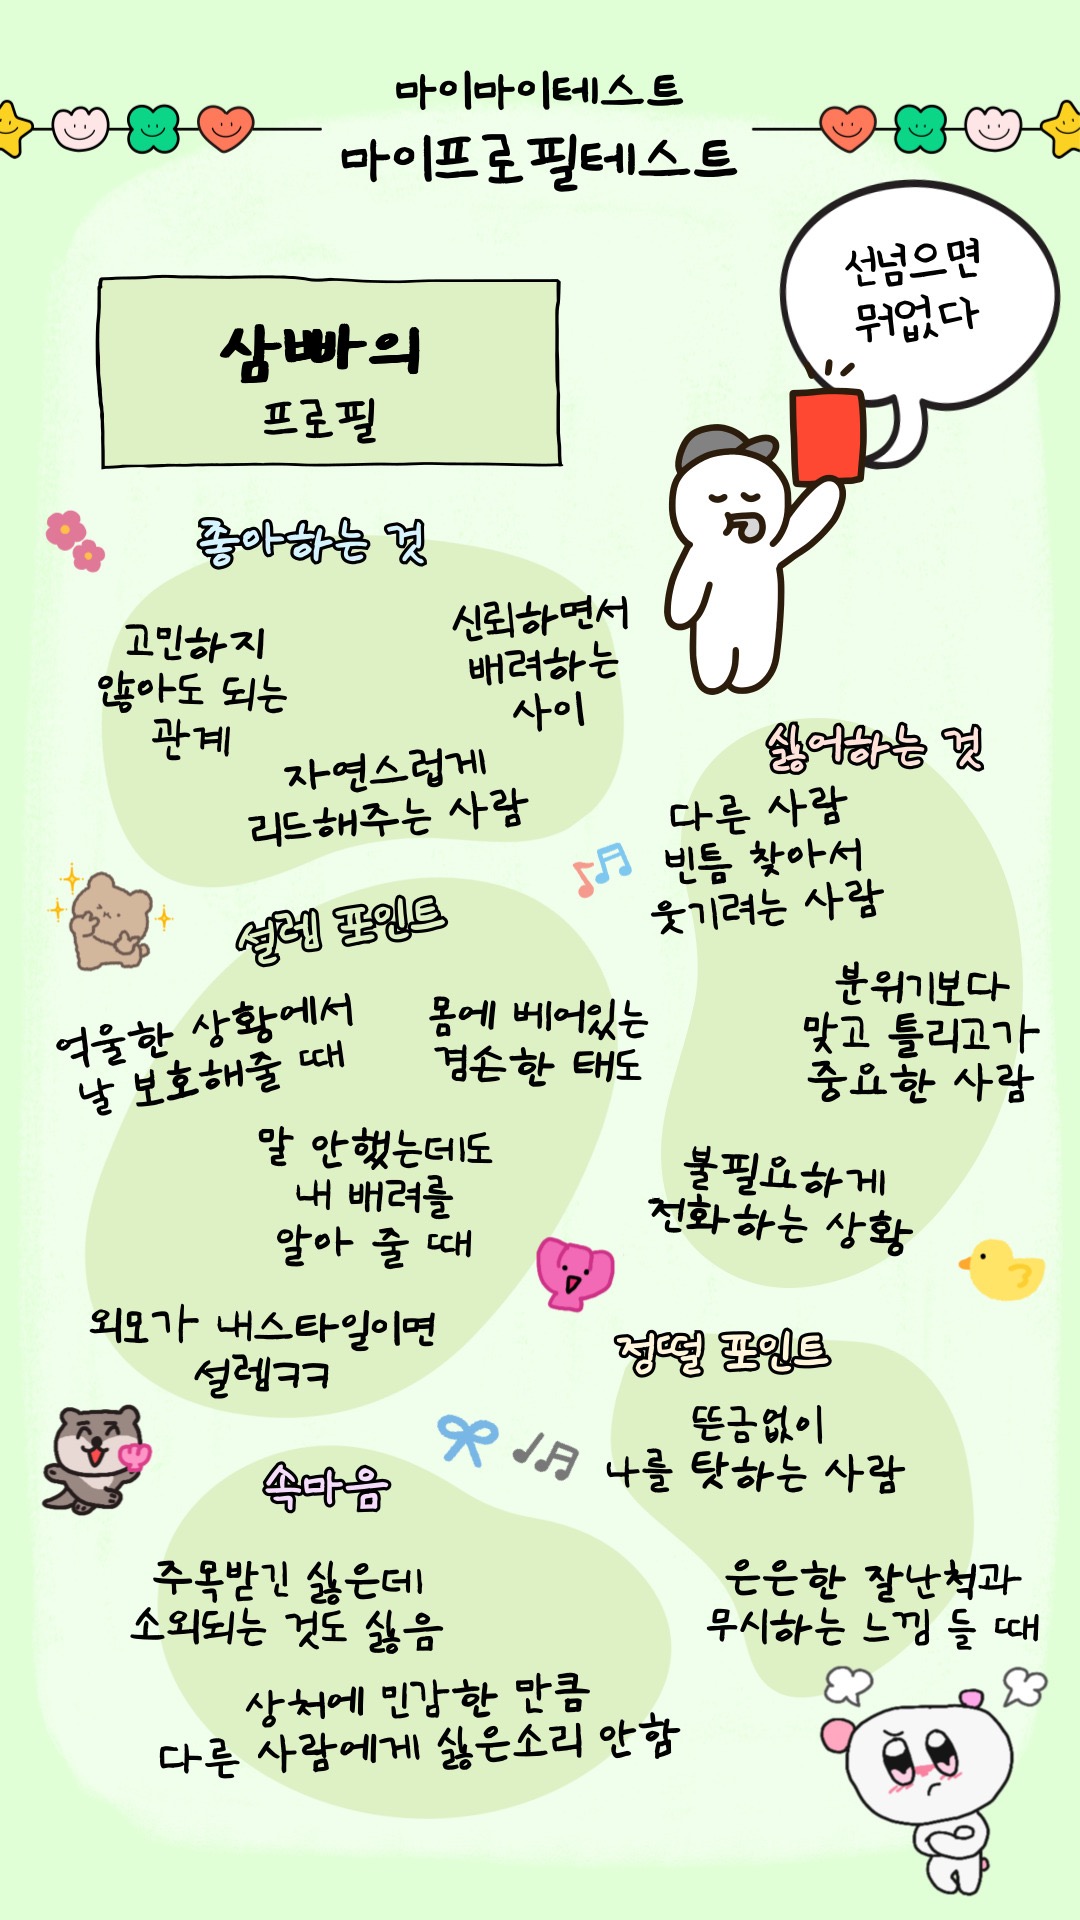 마이마이테스트
마이프로필테스트
선넘으면
뭐없다
삼빠의
프로필
좋아하는 것
고민하지
않아도 되는
관계
신뢰하면서
배려하는
사이
자연스럽게
리드해주는 사람
싫어하는 것
다른 사람
빈틈 찾아서
웃기려는 사람
분위기보다
맞고 틀리고가
중요한 사람
불필요하게
전화하는 상황
설렘 포인트
억울한 상황에서
날 보호해줄 때
몸에 베어있는
겸손한 태도
말 안했는데도
내 배려를
알아 줄 때
외모가 내스타일이면
설렘ㅋㅋ
정떨 포인트
뜬금없이
나를 탓하는 사람
은은한 잘난척과
무시하는 느낌 들 때
속마음
주목받긴 싫은데
소외되는 것도 싫음
상처에 민감한 만큼
다른 사람에게 싫은소리 안함